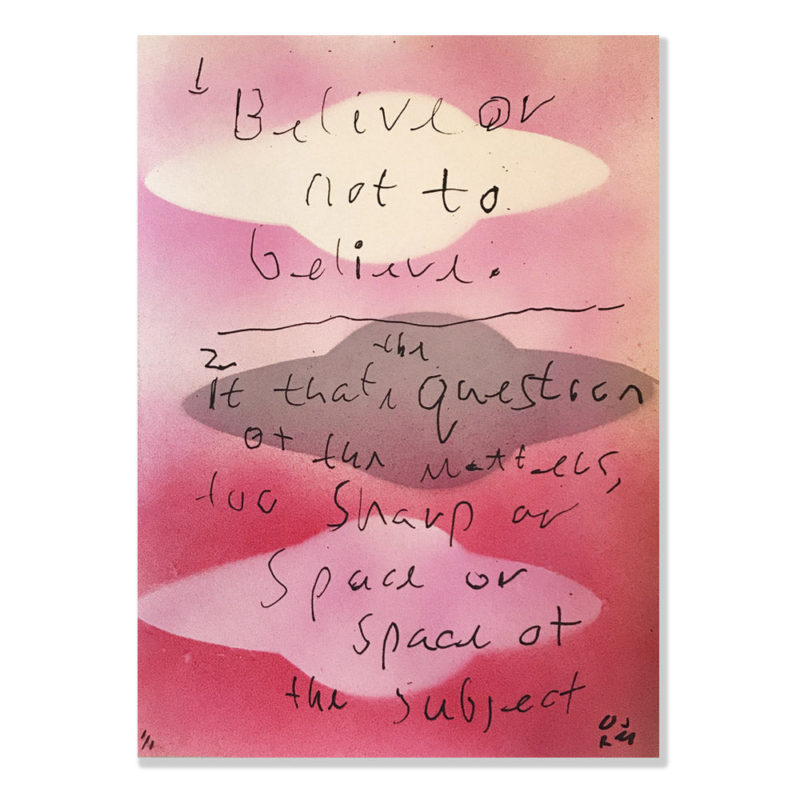 1
Belive or
not to
believe.
2
the
It that, Question
of the matters,
too Sharp or
Space or
space of
the subject
1/1